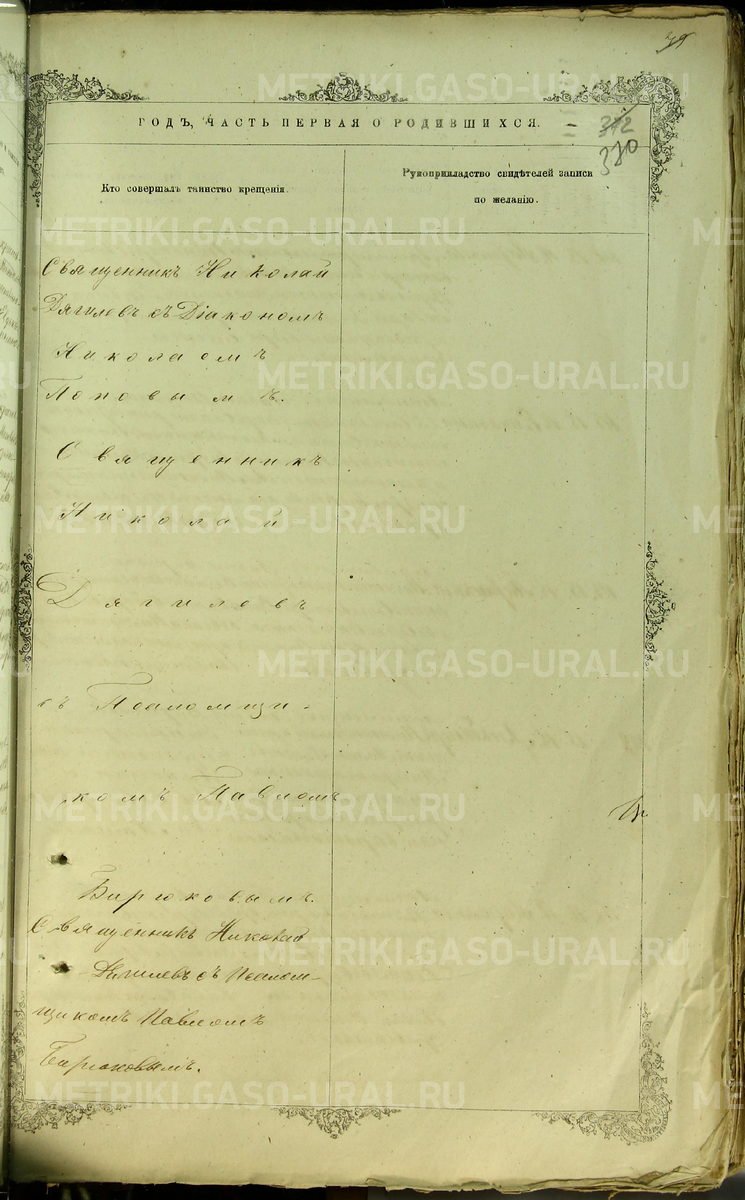 ГОДЪ, ЧАСТЬ ПЕРВАЯ О РОДИВШИХСЯ.
372
380
Кто совершалъ таинство крещенія.
Рукоприкладство свидѣтелей записи
по желанію.
Священникъ Николай
Дягилевъ съ Діакономъ
Николаемъ
Поповымъ.
Священникъ
Николай
Дягилевъ
съ Псаломщи-
комъ Павломъ
Бирюковымъ.
Священникъ Николай
Дягилевъ съ Псалом-
щикомъ Павломъ
Бирюковымъ.
METRIKI.GASO-URAL.RU